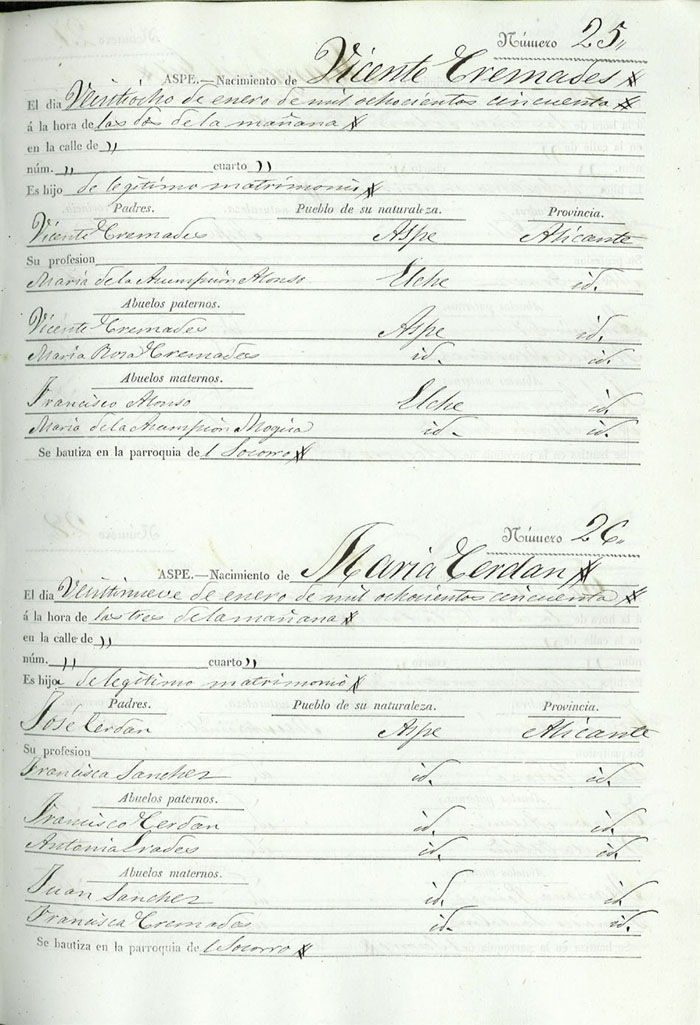 Número 25,,
ASPE.—Nacimiento de Vicente Cremades
El dia Veintiocho de enero de mil ochocientos cincuenta
á la hora de las dos de la mañana
en la calle de ,,
núm. ,, cuarto ,,
Es hijo de legitimo matrimonio
Padres. Pueblo de su naturaleza. Provincia.
Vicente Cremades Aspe Alicante
Su profesion
Maria de la Asumpsion Alonso Elche id.
Abuelos paternos.
Vicente Cremades Aspe id.
Maria Rosa Cremades id. id.
Abuelos maternos.
Francisco Alonso Elche id.
Maria de la Asumpsion Mogica id. id.
Se bautiza en la parroquia del Socorro
Número 26,,
ASPE.—Nacimiento de Maria Cerdan
El dia Veintinueve de enero de mil ochocientos cincuenta
á la hora de las tres de la mañana
en la calle de ,,
núm. ,, cuarto ,,
Es hija de legitimo matrimonio
Padres. Pueblo de su naturaleza. Provincia.
José Cerdan Aspe Alicante
Su profesion
Francisca Sanchez id. id.
Abuelos paternos.
Francisco Cerdan id. id.
Antonia Prades id. id.
Abuelos maternos.
Juan Sanchez id. id.
Francisca Cremades id. id.
Se bautiza en la parroquia del Socorro